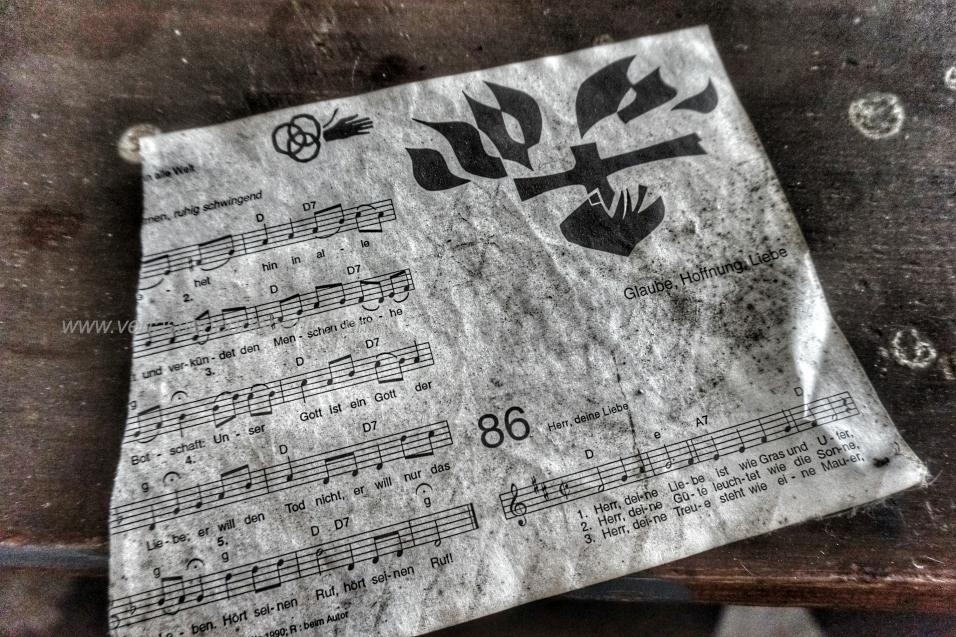 alle Welt
ruhig schwingend
D D7
het hin in al - le
2. D D7
und ver-kün-det den Men-schen die fro-he
g 3. D D7
Bot - schaft: Un - ser Gott ist ein Gott der
g 4. D D7
Lie-be; er will den Tod nicht, er will nur das
g 5. g D D7 g
ben. Hört sei-nen Ruf, hört sei-nen Ruf!
1990; R: beim Autor
Glaube, Hoffnung, Liebe
86 Herr, deine Liebe
D e A7 D
1. Herr, dei-ne Lie-be ist wie Gras und U-fer,
2. Herr, dei-ne Gü-te leuch-tet wie die Son-ne,
3. Herr, dei-ne Treu-e steht wie ei-ne Mau-er,